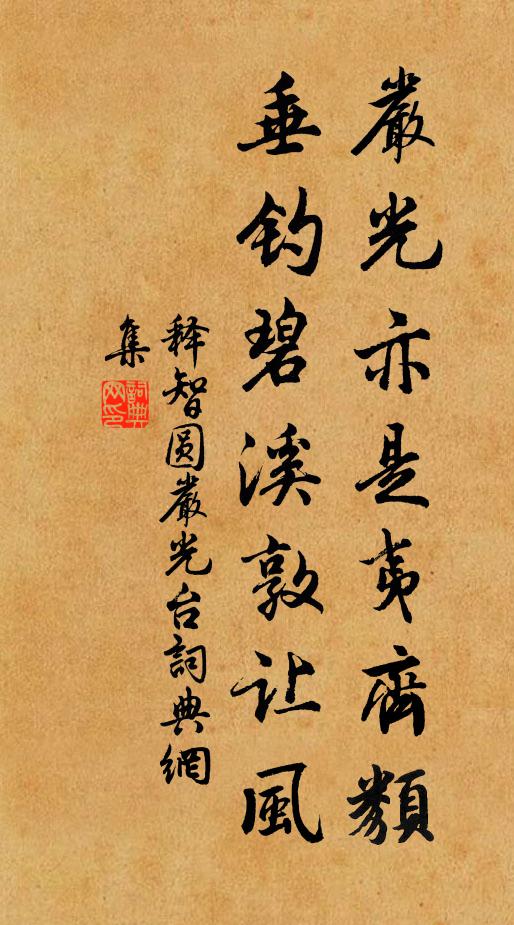 嚴光亦是夷齊類
垂钓碧溪敦让風
释智圆嚴光台詞典網
集
詞典
网印